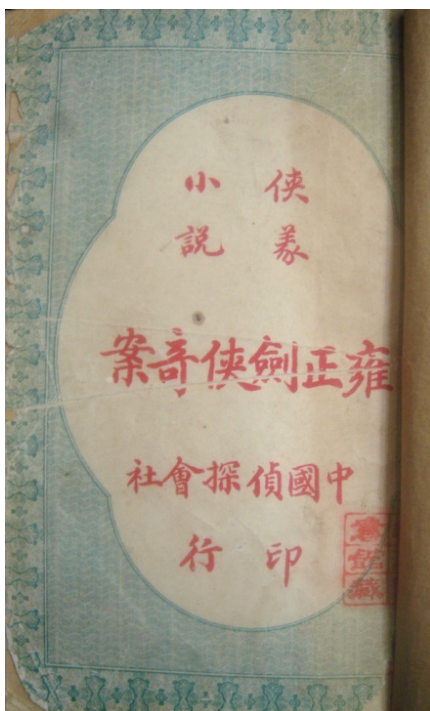 俠義
小說
雍正劍俠奇案
中國偵探會社
印行
館藏